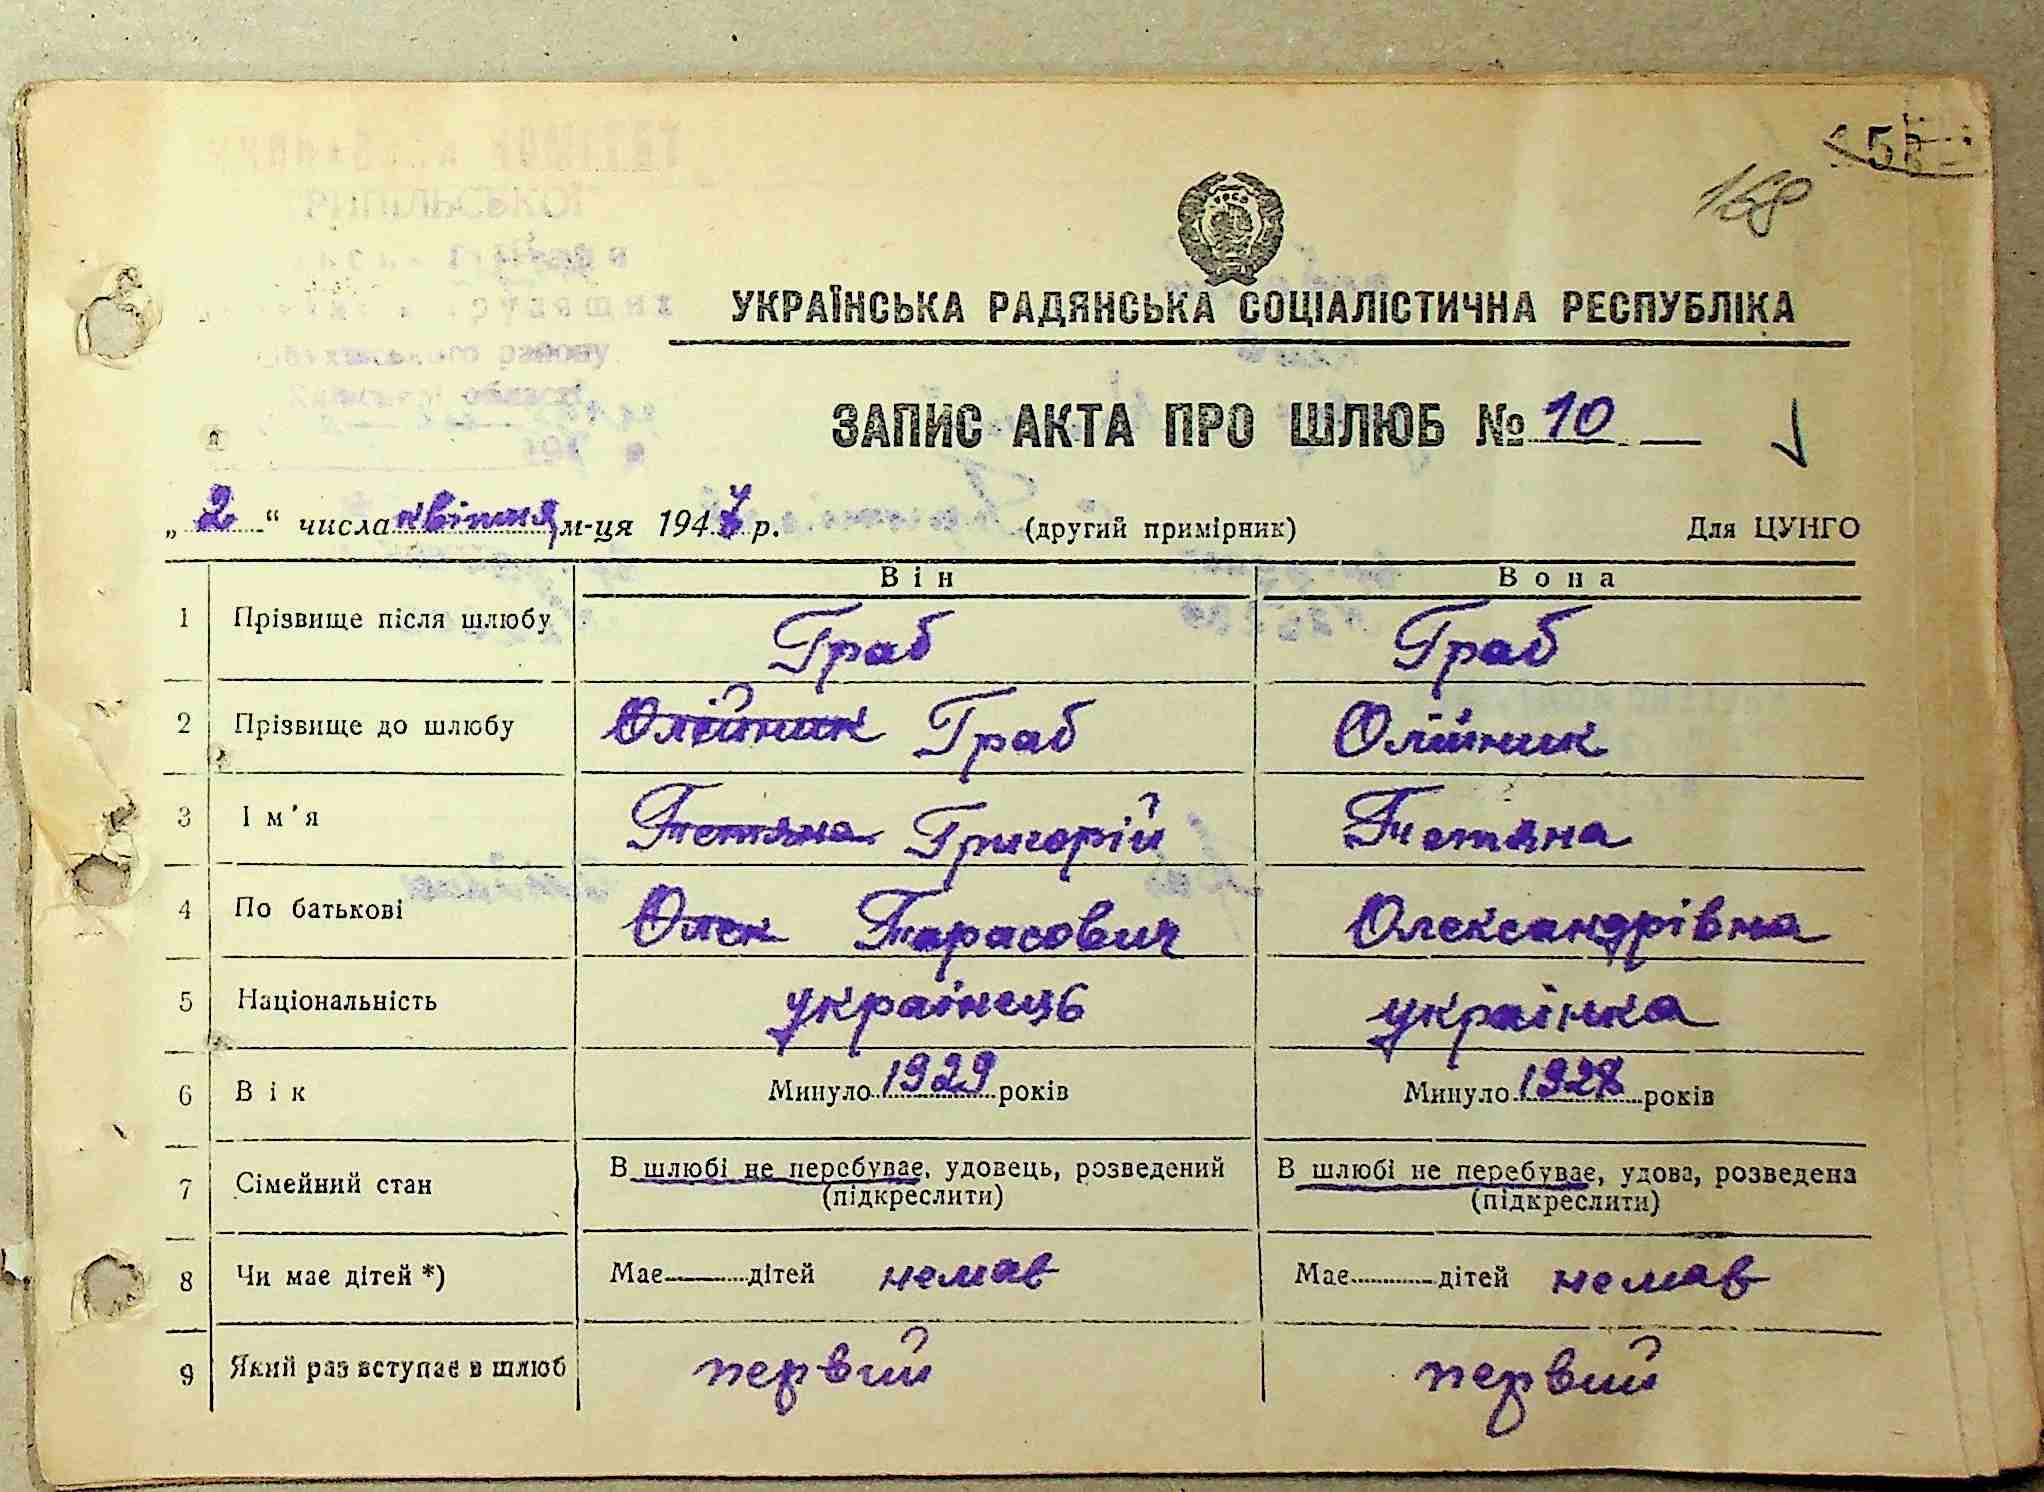 168
УКРАЇНСЬКА РАДЯНСЬКА СОЦІАЛІСТИЧНА РЕСПУБЛІКА
ЗАПИС АКТА ПРО ШЛЮБ № 10
„2“ числа квітня м-ця 1947 р. (другий примірник) Для ЦУНГО
Він Вона
1 Прізвище після шлюбу Граб Граб
2 Прізвище до шлюбу Олійник Граб Олійник
3 Ім'я Тетяна Григорій Тетяна
4 По батькові Олек Тарасович Олександрівна
5 Національність українець українка
6 Вік Минуло 1929 років Минуло 1928 років
7 Сімейний стан В шлюбі не перебуває, удовець, розведений В шлюбі не перебуває, удова, розведена
(підкреслити) (підкреслити)
8 Чи має дітей *) Має дітей немав Має дітей немав
9 Який раз вступає в шлюб первий первий